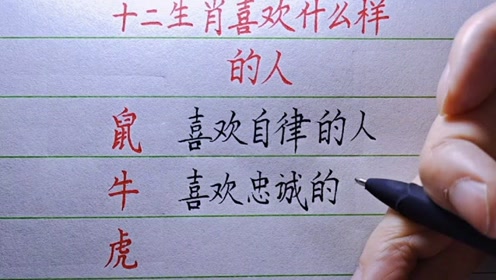 十二生肖喜欢什么样
的人
鼠 喜欢自律的人
牛 喜欢忠诚的
虎